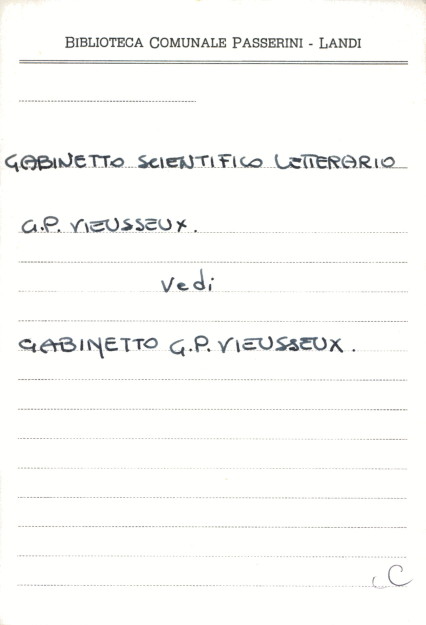 BIBLIOTECA COMUNALE PASSERINI - LANDI
GABINETTO SCIENTIFICO LETTERARIO
G.P. VIEUSSEUX.
Vedi
GABINETTO G.P. VIEUSSEUX.
C